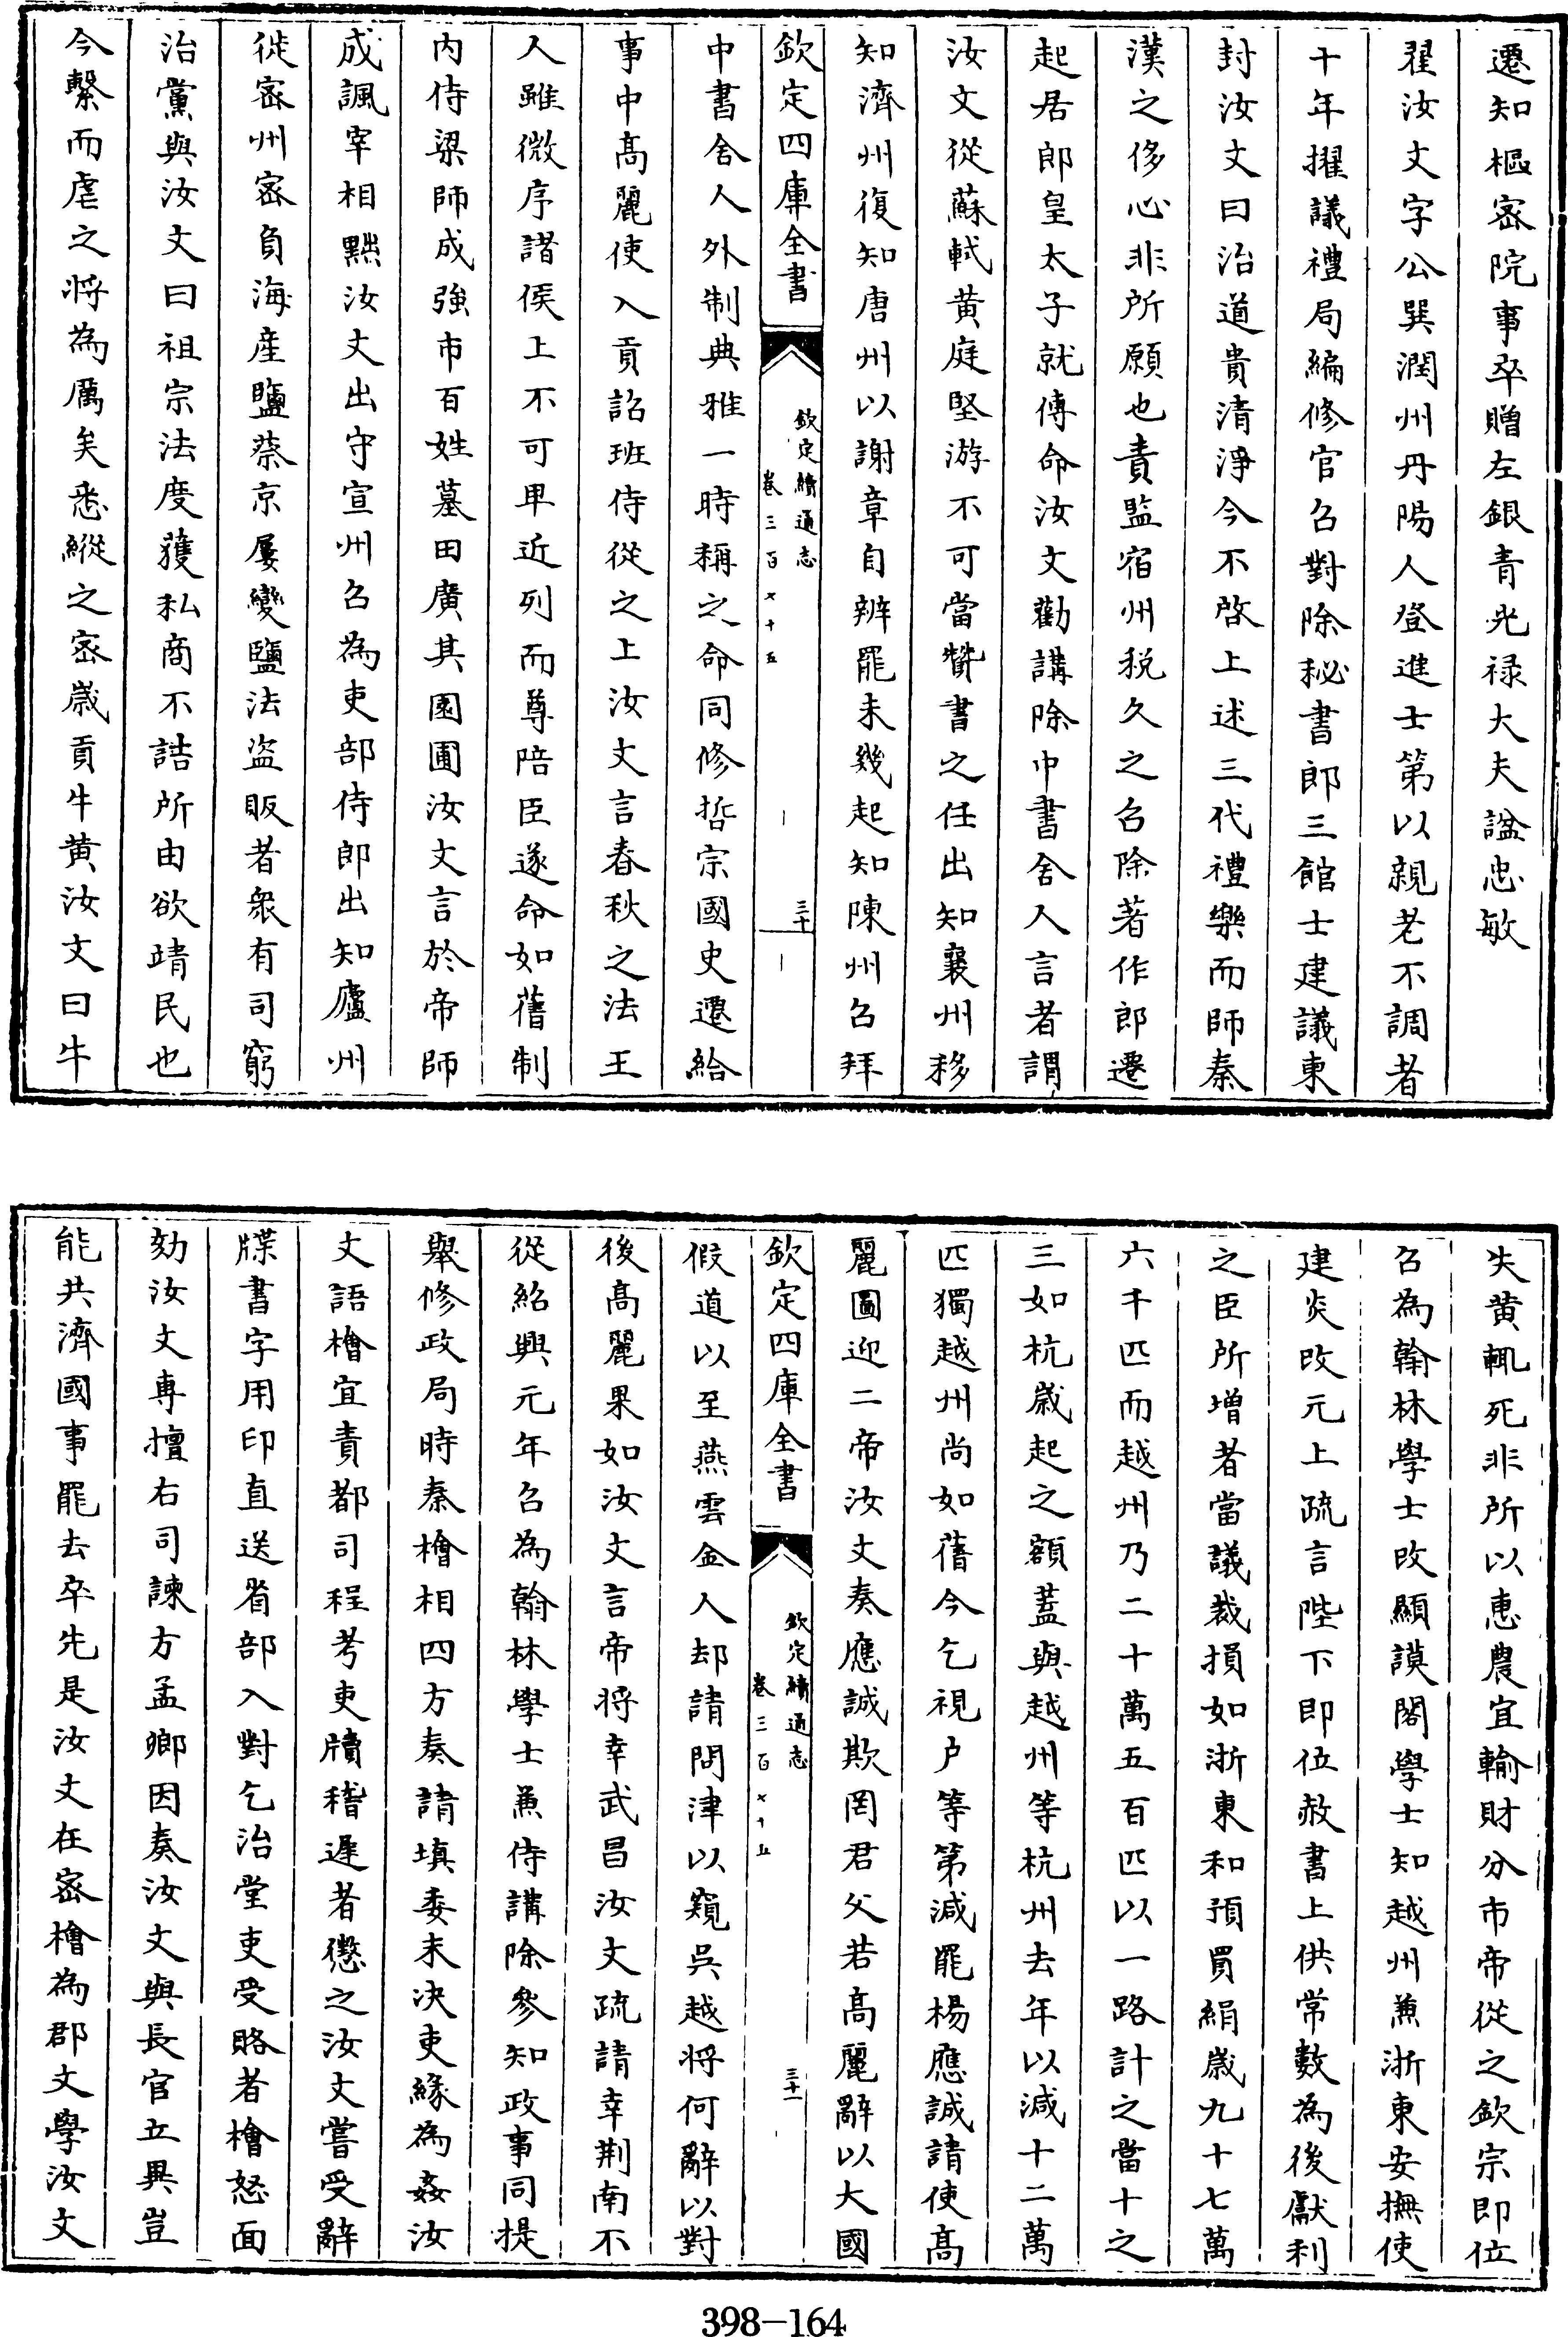 遷知樞宻院事卒贈左銀青光禄大夫諡忠敏
翟汝文字公巽潤州丹陽人登進士第以親老不調者
十年擢議禮局編修官召對除秘書郎三館士建議東
封汝文曰治道貴清淨今不啓上述三代禮樂而師秦
漢之侈心非所願也責監宿州税久之召除著作郎遷
起居郎皇太子就傅命汝文勸講除中書舍人言者謂
汝文從蘇軾黄庭堅游不可當贊書之任出知襄州移
知濟州復知唐州以謝章自辨罷未幾起知陳州召拜
欽定四庫全書
欽定續通志
卷三百七十五
三十
中書舍人外制典雅一時稱之命同修哲宗國史遷給
事中高麗使入貢詔班侍從之上汝文言春秋之法王
人雖微序諸侯上不可卑近列而尊陪臣遂命如舊制
内侍梁師成強市百姓墓田廣其園圃汝文言於帝師
成諷宰相黜汝文出守宣州召為吏部侍郎出知廬州
徙宻州宻負海産鹽蔡京屢變鹽法盜販者衆有司窮
治黨與汝文曰祖宗法度獲私商不詰所由欲靖民也
今繫而虐之將為厲矣悉縱之宻歲貢牛黄汝文曰牛
失黄輒死非所以惠農宜輸財分市帝從之欽宗即位
召為翰林學士改顯謨閣學士知越州兼浙東安撫使
建炎改元上疏言陛下即位赦書上供常數為後獻利
之臣所增者當議裁損如浙東和預買絹歲九十七萬
六千匹而越州乃二十萬五百匹以一路計之當十之
三如杭歲起之額蓋與越州等杭州去年以減十二萬
匹獨越州尚如舊今乞視户等第減罷楊應誠請使高
麗圖迎二帝汝文奏應誠欺罔君父若高麗辭以大國
欽定四庫全書
欽定續通志
卷三百七十五
三十一
假道以至燕雲金人却請問津以窺吳越將何辭以對
後高麗果如汝文言帝將幸武昌汝文疏請幸荆南不
從紹興元年召為翰林學士兼侍講除參知政事同提
舉修政局時秦檜相四方奏請填委未決吏緣為姦汝
文語檜宜責都司程考吏牘稽遲者懲之汝文嘗受辭
牒書字用印直送省部入對乞治堂吏受賂者檜怒面
劾汝文專擅右司諫方孟卿因奏汝文與長官立異豈
能共濟國事罷去卒先是汝文在宻檜為郡文學汝文
398-164